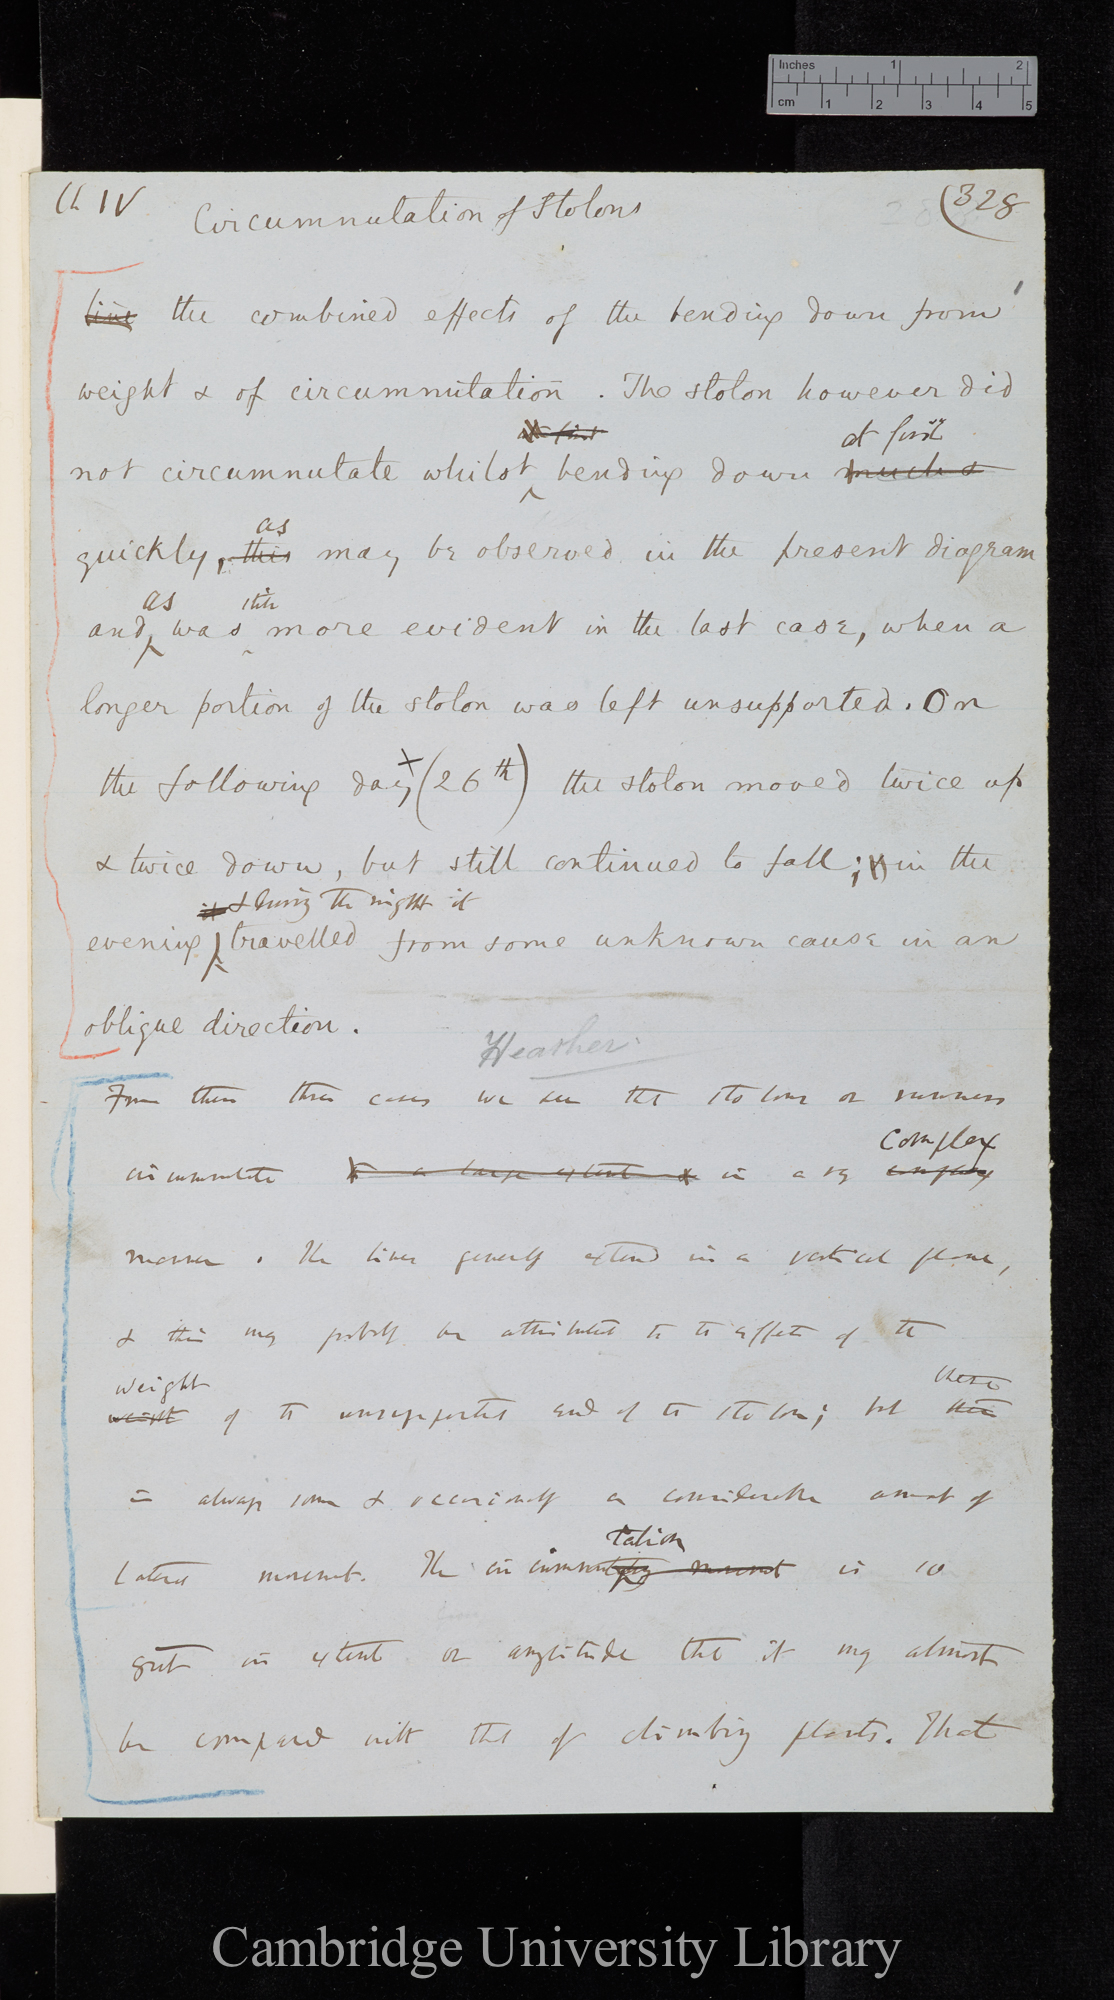 Inches 1 2
cm 1 2 3 4 5
Ch IV
Circumnutation of Stolons
(328
line the combined effects of the bending down from
weight & of circumnutation. The stolon however did
at first at first
not circumnutate whilst bending down much &
as
quickly, this may be observed in the present diagram
as still
and, was more evident in the last case, when a
longer portion of the stolon was left unsupported. On
the following day (26th) the stolon moved twice up
& twice down, but still continued to fall; in the
it & during the night it
evening travelled from some unknown cause in an
oblique direction.
Heather
From these three cases we see that stolons or runners
complex
circumnutate to a large extent & in a very complex
manner. The lines generally extend in a vertical plane,
& this may probably be attributed to the effects of the
weight there
weight of the unsupported end of the stolon; but there
is always some & occasionally a considerable amount of
tation
lateral movement. The circumnutating movement is so
great in extent or amplitude that it may almost
be compared with that of climbing plants. That
Cambridge University Library